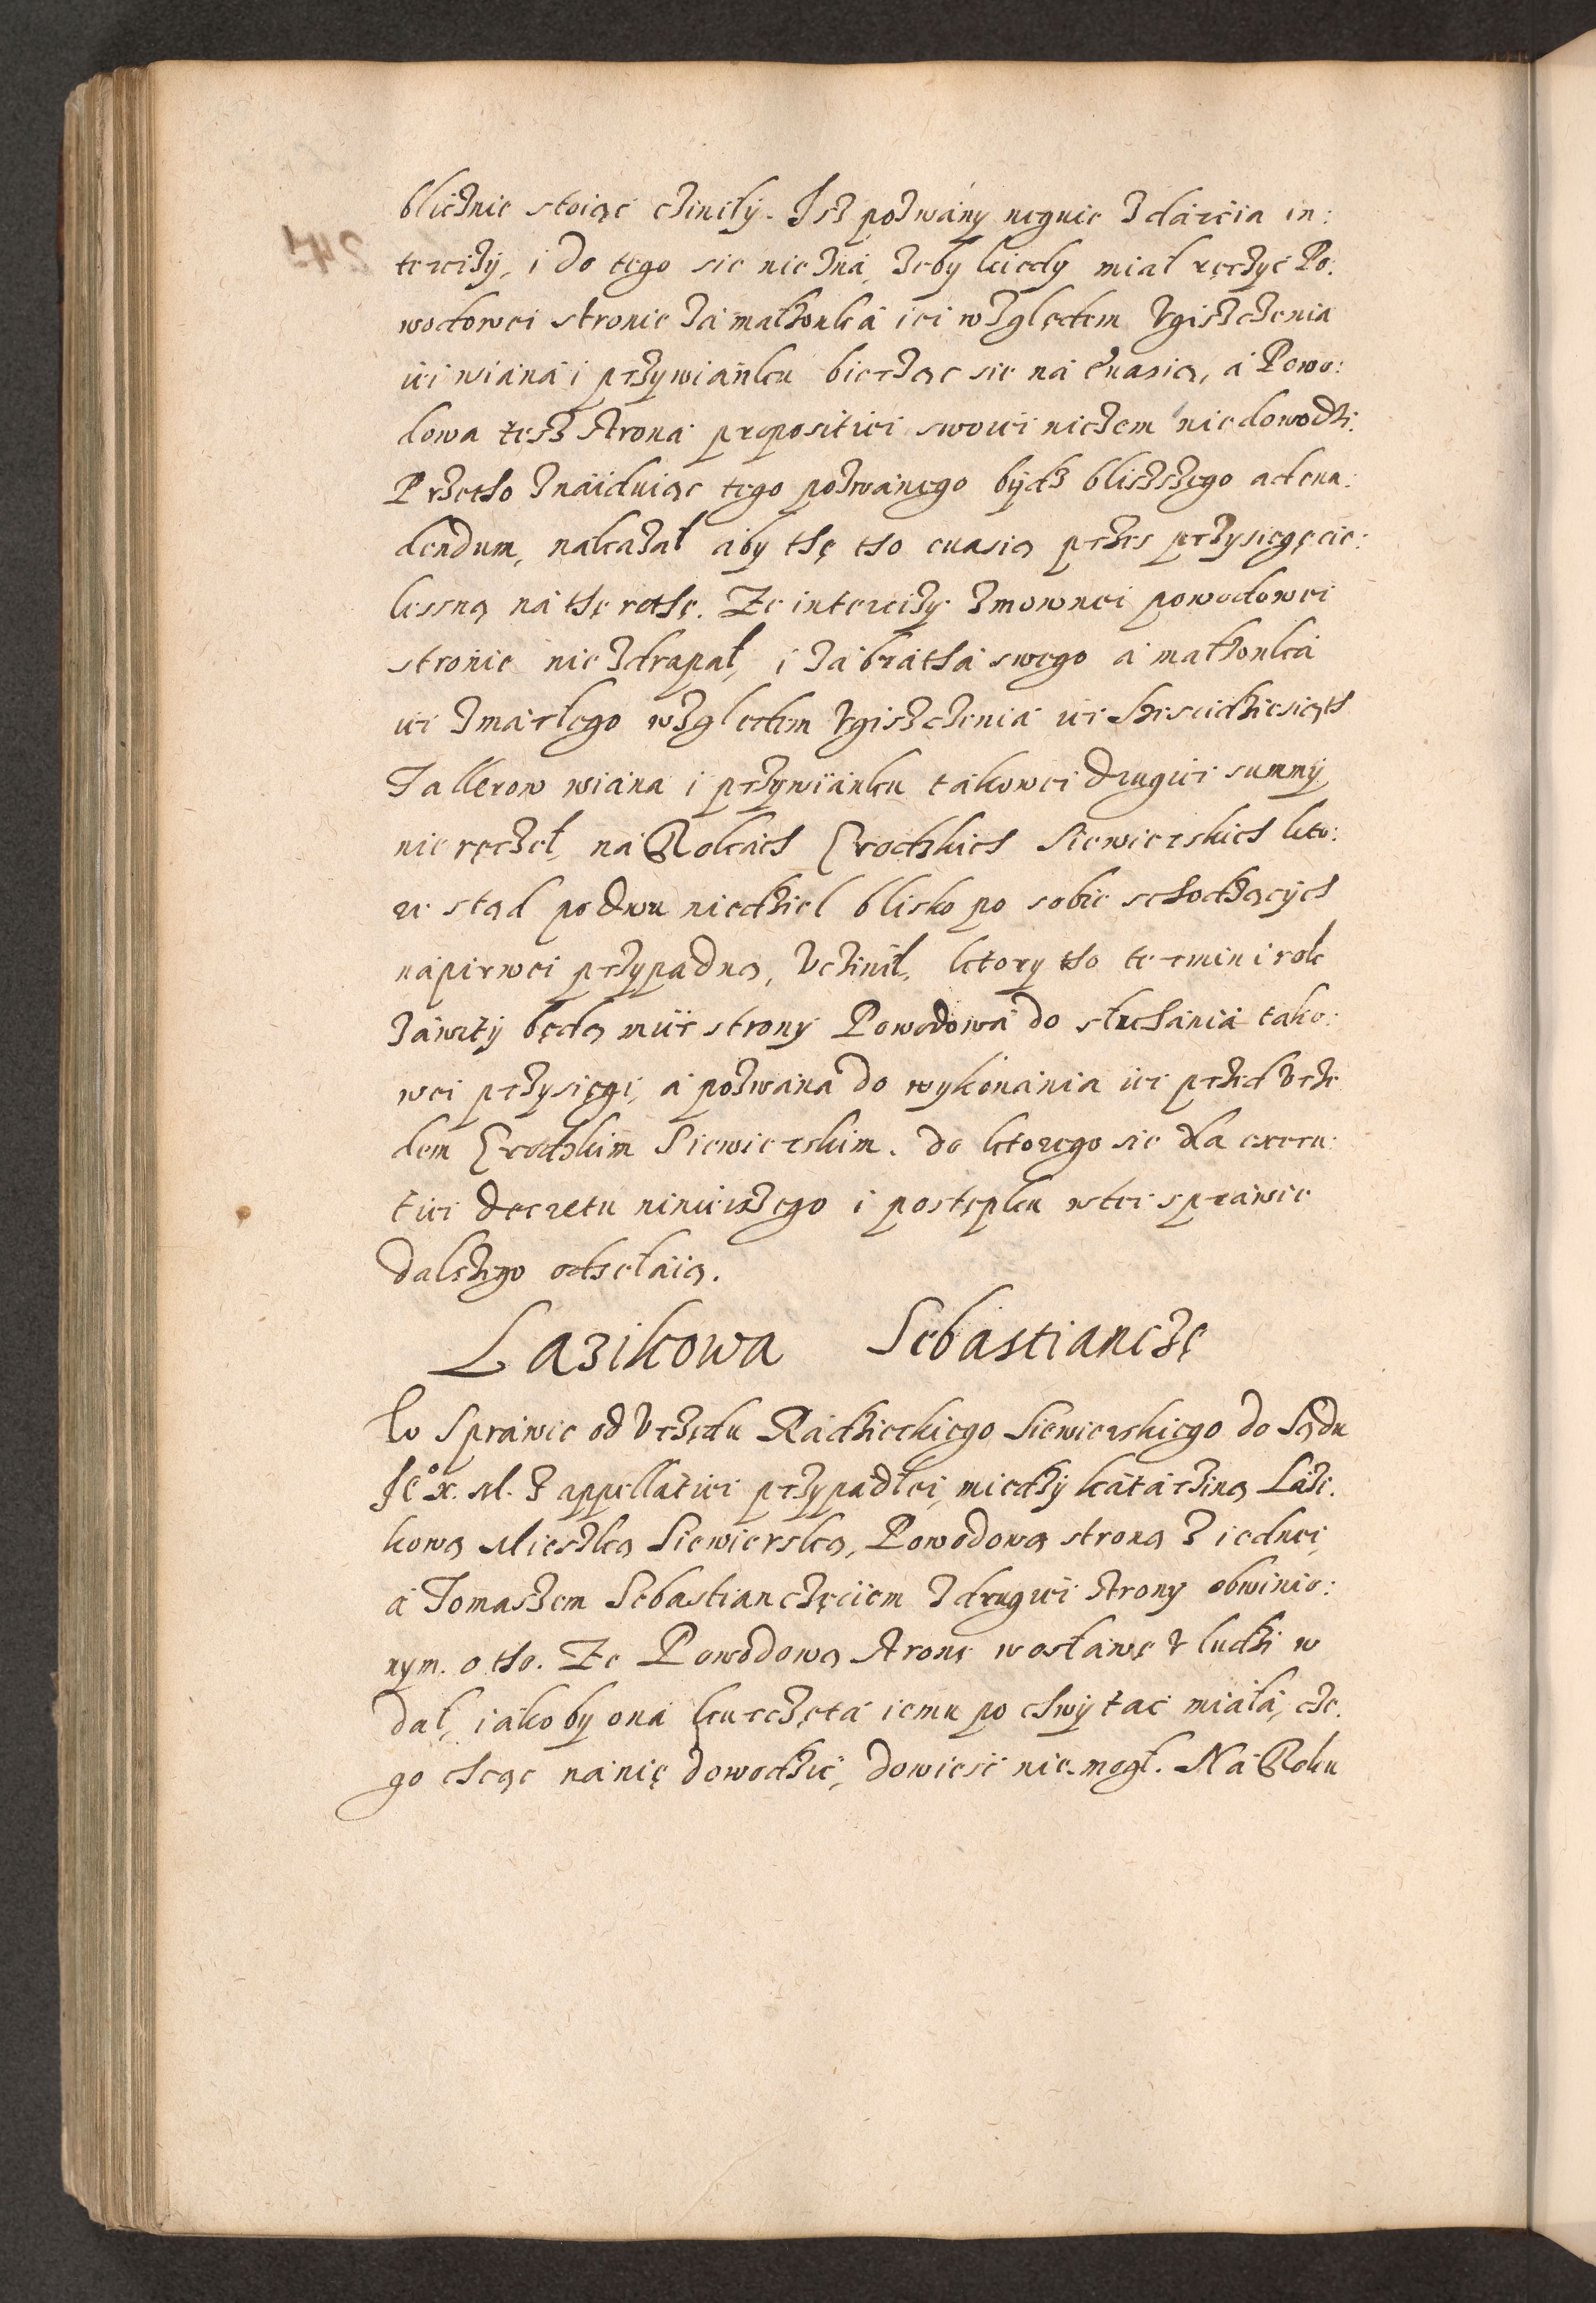 blicznie stoiąc cziniły. Isz pozwány neguie zdárcia in:
tercizy, i do tego sie niezná, zeby kiedy miał ręczyć Po:
wodowei stronie zá małzonká iei względem zgiszczenia
iei wiáná i przywiánku bierząc sie ná evasią, á Powo:
dowa tesz strona propositiei swoiei niczem niedowodzi:
Przetho znáiduiąc tego pozwánego bydz blizszego ad eua:
dendum, nakazał aby thę tho euasią przes przysięgę cie:
lesną ná thę rothę. Ze intercizy zmownei powodowei
stronie niezdrapał, i zá bráthá swego á małzonká
iei zmarłego względem zgiszczenia iei sześcidziesiąth
Tallerow wiána i przywiánku takowei drugiei summy
nie ręczeł, ná Rokách Grodzkich Siewierskich kto:
re stąd po dwu niedziel blisko po sobie schodzących
napirwei przypadną, uczinił, ktory tho termin i rok
záwity będą mieć strony Powodowá do słuchánia tako:
wei przysięgi, á pozwána do wykonánia iei przed Urzę
dem Grodzkim Siewierskim. do ktorego sie dla execu:
tiei decretu ninieiszego i postępku w tei spráwie
dalszego odsełáią.
Lazikowa Sebastianczę
W Spráwie od Urzędu Rádzieckiego Siewierskiego do Sądu
Je° X. M. z appellatiei przypádłei, miedzy Kátárziną Lázi:
kową Mieszką Siewierską, Powodową stroną z iednei,
á Tomaszem Sebastianczęciem z drugiei strony obwinio:
nym. o tho. Ze Powodową stronę w osławę u ludzi w
dał, iakoby ona kurczętá iemu pochwytać miáłá, cze:
go chcąc ná nię dowodzić, dowieść nie mogł. Ná Roku